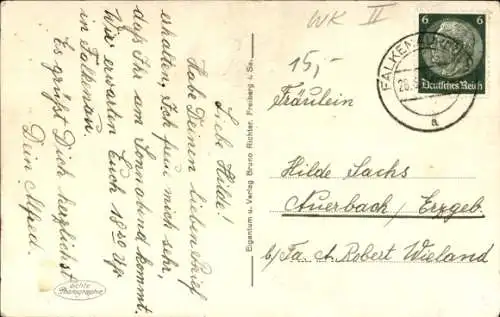 Liebe Hilde!
Habe Deinen lieben Brief
erhalten, Ich freu mich sehr,
daß Ihr am Sonnabend kommt.
Wir erwarten Euch 18 20 Uhr
in Falkenau.
Es grüßt Dich herzlichst
Dein Alfred.
echte
Photographie
Eigentum u. Verlag Bruno Richter, Freiberg i. Sa.
WK II
15,-
6 6
Deutsches Reich
FALKENAU
a
Fräulein
Hilde Sachs
Auerbach / Erzgeb.
b/ Fa. A. Robert Wieland